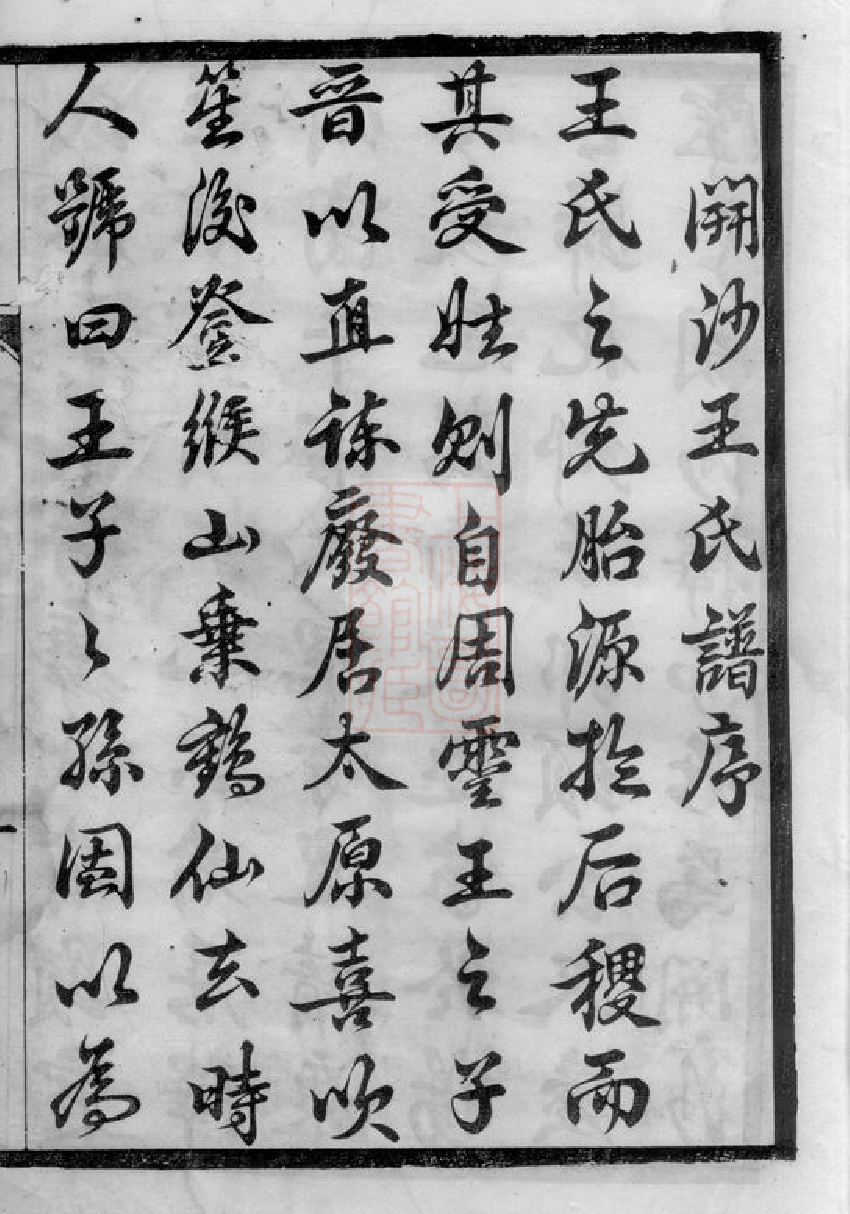 開沙王氏譜序
王氏之先胎源於后稷而
其受姓則自周靈王之子
晉以直諫廢居太原喜吹
笙後登緱山乗鶴仙去時
人號曰王子〻孫因以為
上海圖書館藏